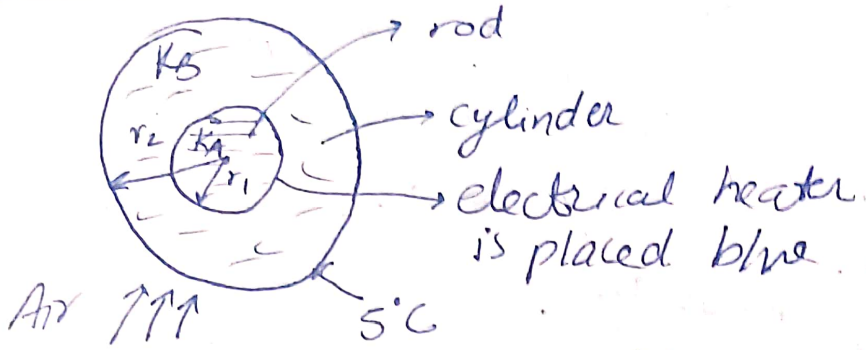 rod
KB
cylinder
r2
KA
r1
electrical heater
is placed b/w
Air
5°C